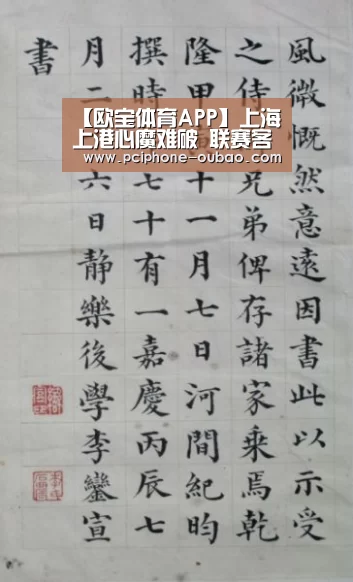 風微慨然意遠因書此以示受
之侍兄弟俾存諸家乘焉乾
隆甲十一月七日河間紀昀
撰時七十有一嘉慶丙辰七
月二六日靜樂後學李鑾宣
書
【欧宝体育APP】上海
上港心魔难破 联赛客
www.pciphone-oubao.com